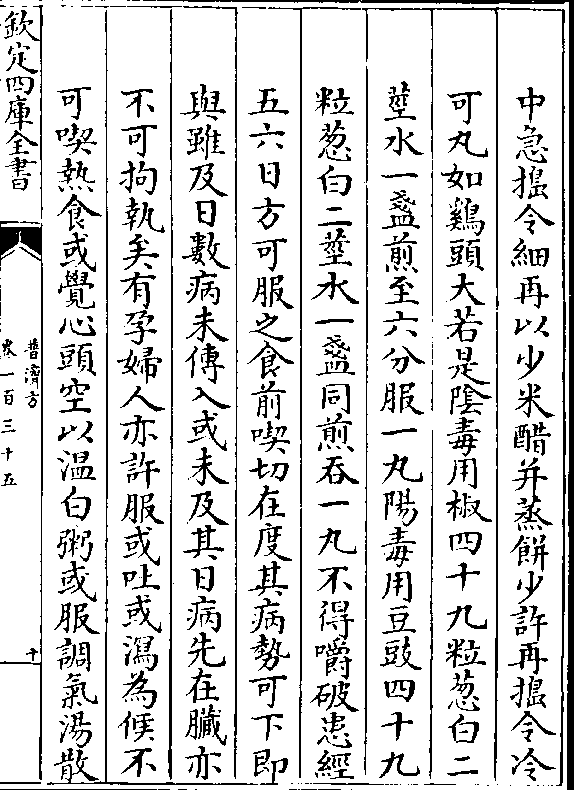 中急搗令細再以少米醋并蒸餅少許再搗令冷
可丸如鷄頭大若是隂毒用椒四十九粒葱白二
莖水一盞煎至六分服一丸陽毒用豆豉四十九
粒葱白二莖水一盞同煎吞一丸不得嚼破患經
五六日方可服之食前喫切在度其病勢可下即
與雖及日數病未傳入或未及其日病先在臟亦
不可拘執矣有孕婦人亦許服或吐或瀉為候不
可喫熱食或覺心頭空以溫白粥或服調氣湯散
欽定四庫全書
普濟方
卷一百三十五
十